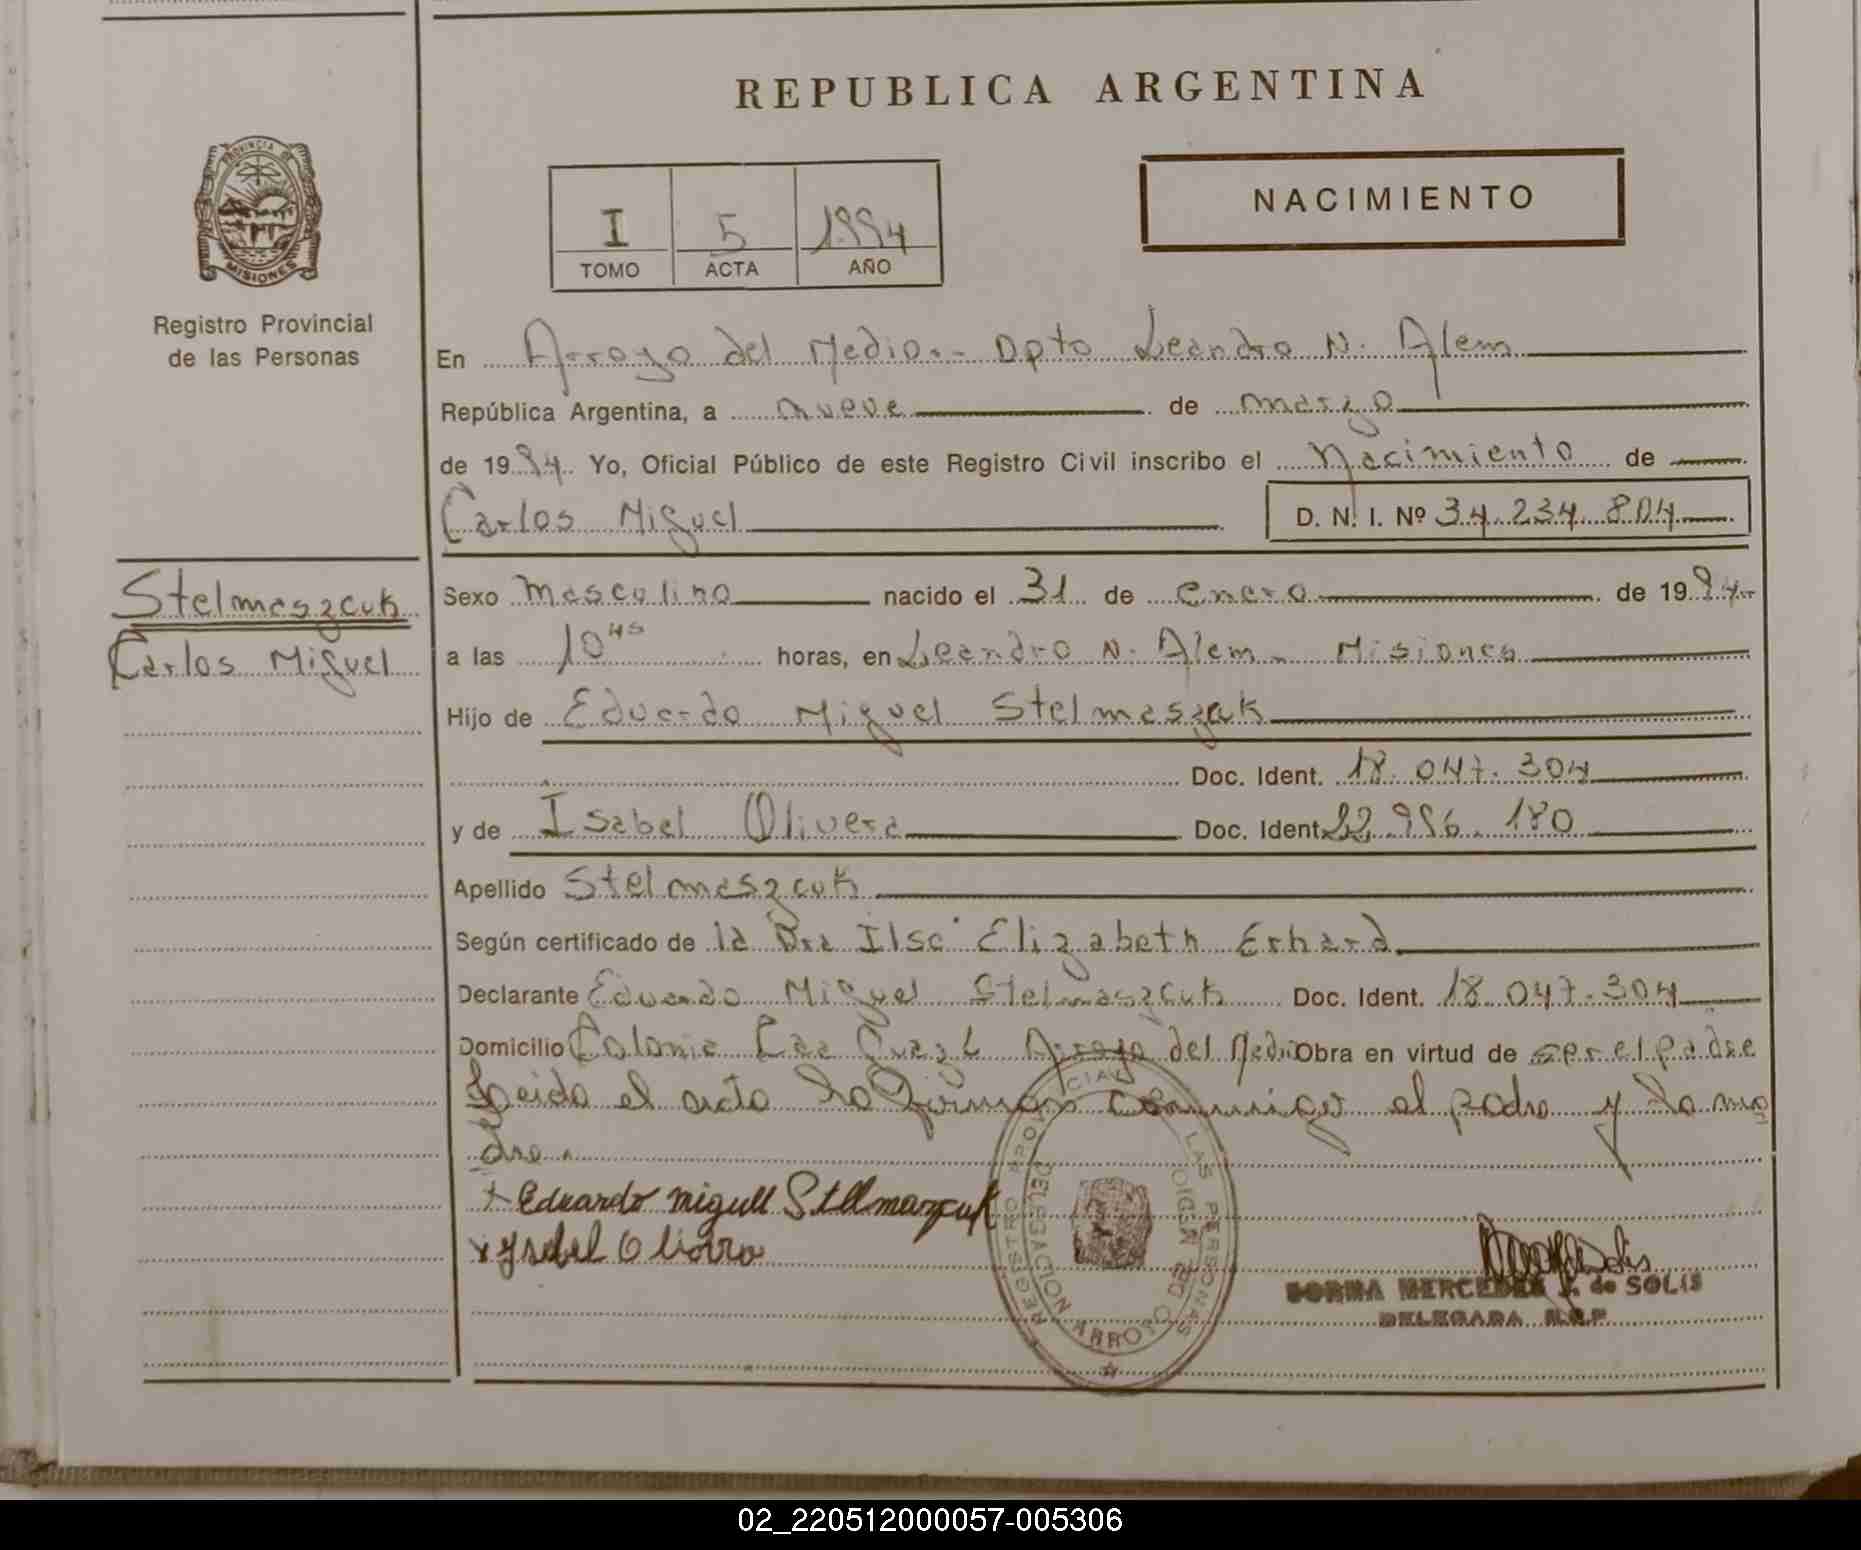 REPUBLICA ARGENTINA
PROVINCIA DE
MISIONES
Registro Provincial
de las Personas
I 5 1994
TOMO ACTA AÑO
NACIMIENTO
En Arroyo del Medio.- Dpto Leandro N. Alem
República Argentina, a nueve de marzo
de 1994. Yo, Oficial Público de este Registro Civil inscribo el Nacimiento de
Carlos Miguel D. N. I. Nº 34.234.804
Stelmaszcuk
Carlos Miguel
Sexo Masculino nacido el 31 de enero de 1994
a las 10 hs horas, en Leandro N. Alem - Misiones
Hijo de Eduardo Miguel Stelmaszcuk
Doc. Ident. 18.047.304
y de Isabel Olivera Doc. Ident. 22.996.180
Apellido Stelmaszcuk
Según certificado de la Dra Ilse Elizabeth Erhard
Declarante Eduardo Miguel Stelmaszcuk Doc. Ident. 18.047.304
Domicilio Colonia Caa Guazú Arroyo del Medio Obra en virtud de ser el padre
Leida el acta la firman conmigo el padre y la ma
dre.
Eduardo miguel Stelmaszcuk
Ysabel Olivera
REGISTRO PROVINCIAL DE LAS PERSONAS
DELEGACION ARROYO DEL MEDIO
NORMA MERCEDES J. de SOLIS
DELEGADA R.C.P
02_220512000057-005306